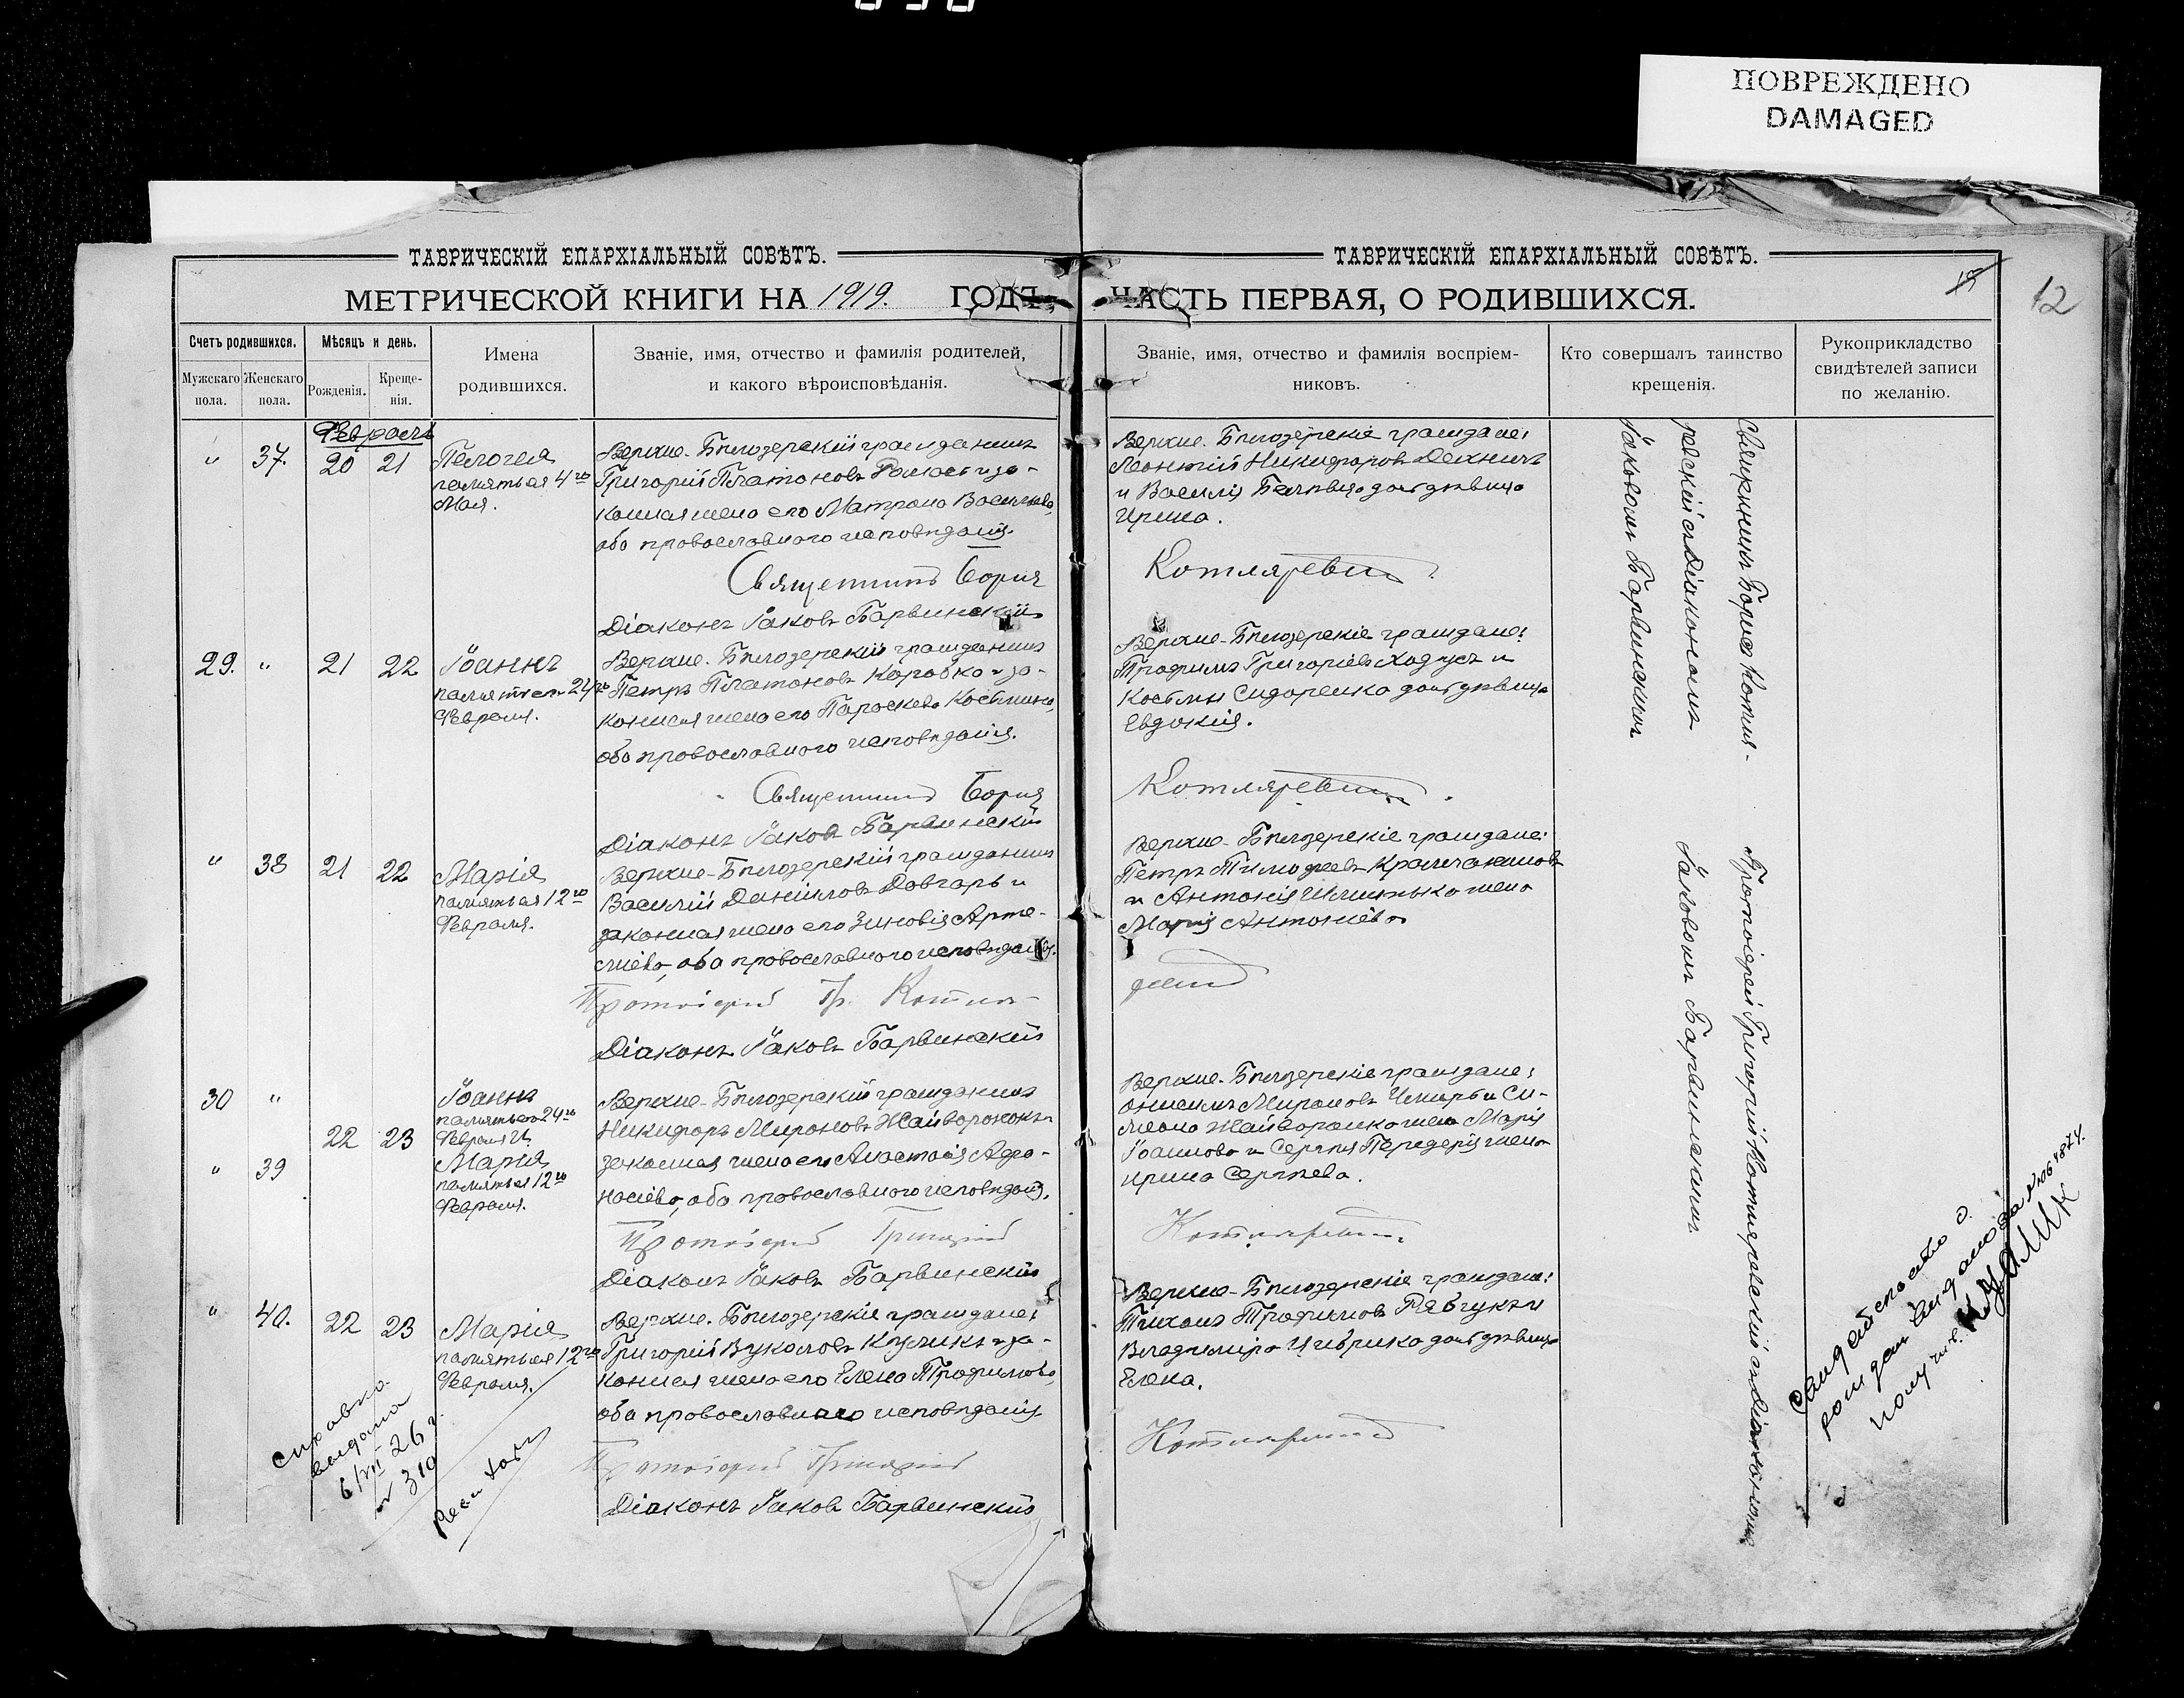 ПОВРЕЖДЕНО
DAMAGED
ТАВРИЧЕСКІЙ ЕПАРХІАЛЬНЫЙ СОВѢТЪ.
МЕТРИЧЕСКОЙ КНИГИ НА 1919. ГОДЪ,
Счетъ родившихся.
Мужскаго пола.
Женскаго пола.
Мѣсяцъ и день.
Рожденія.
Креще-
нія.
Имена
родившихся.
Званіе, имя, отчество и фамилія родителей,
и какого вѣроисповѣданія.
Февраль
" 37. 20 21
Пелагея
память ея 4го
Мая.
Верхне-Бѣлозерскій гражданинъ
Григорій Платоновъ и за-
конная жена его Матрона Васильева,
оба православнаго исповѣданія.
Священникъ Борис
Діаконъ Іаковъ Барвинскій
29. " 21 22
Іоаннъ
память его 24го
Февраля.
Верхне-Бѣлозерскій гражданинъ
Петръ Платоновъ Коробка и за-
конная жена его Параскева Косьмина,
оба православнаго исповѣданія.
Священникъ Борис
Діаконъ Іаковъ Барвинскій
" 38 21 22
Марія
память ея 12го
Февраля.
Верхне-Бѣлозерскій гражданинъ
Василій Даніиловъ Довгарь и
законная жена его Зиновія Арте-
міева, оба православнаго исповѣданія.
Протоіерей Гр. Котля-
Діаконъ Іаковъ Барвинскій
30 "
22 23
" 39
Іоаннъ
память его 24го
Февраля И
Марія
память ея 12го
Февраля.
Верхне-Бѣлозерскій гражданинъ
Никифоръ Мироновъ Жайворонокъ и
законная жена его Анастасія Афа-
насіева, оба православнаго исповѣданія.
Протоіерей Григорій
Діаконъ Іаковъ Барвинскій
" 40. 22 23
Марія
память ея 12го
Февраля.
Верхне-Бѣлозерскіе граждане:
Григорій Вуколовъ Кузликъ и за-
конная жена его Елена Трофимова,
оба православнаго исповѣданія.
Протоіерей Григорій
Діаконъ Іаковъ Барвинскій
справка
выдана
6/VII 26 г.
№ 319
ТАВРИЧЕСКІЙ ЕПАРХІАЛЬНЫЙ СОВѢТЪ.
ЧАСТЬ ПЕРВАЯ, О РОДИВШИХСЯ.
12
Званіе, имя, отчество и фамилія воспріем-
никовъ.
Кто совершалъ таинство
крещенія.
Рукоприкладство
свидѣтелей записи
по желанію.
Верхне-Бѣлозерскіе граждане:
Леонтій Никифоровъ Дехничъ
и Василія дочь дѣвица
Ирина.
Котляревскій
Верхне-Бѣлозерскіе граждане:
Трофимъ Григоріевъ Ходусъ и
Косьмы Сидоренка дочь дѣвица
Евдокія.
Котляревскій
Верхне-Бѣлозерскіе граждане:
Петръ Тимофеевъ
и Антонія жена
Марія Антоніева
Верхне-Бѣлозерскіе граждане:
Онисимъ Мироновъ и Си-
меона Жайворонка жена Марія
Іоаннова и Сергѣя Передерія жена
Ирина Сергѣева.
Котляревскій
Верхне-Бѣлозерскіе граждане:
Тихонъ Трофимовъ Рябчукъ и
Владиміра Цибрика дочь дѣвица
Елена.
Котляревскій
Священникъ Борисъ Котля-
ревскій съ діакономъ
Іаковомъ Барвинскимъ
Протоіерей Григорій Котляревскій съ діакономъ
Іаковомъ Барвинскимъ
Свидетельство о
рождении выдано
получил